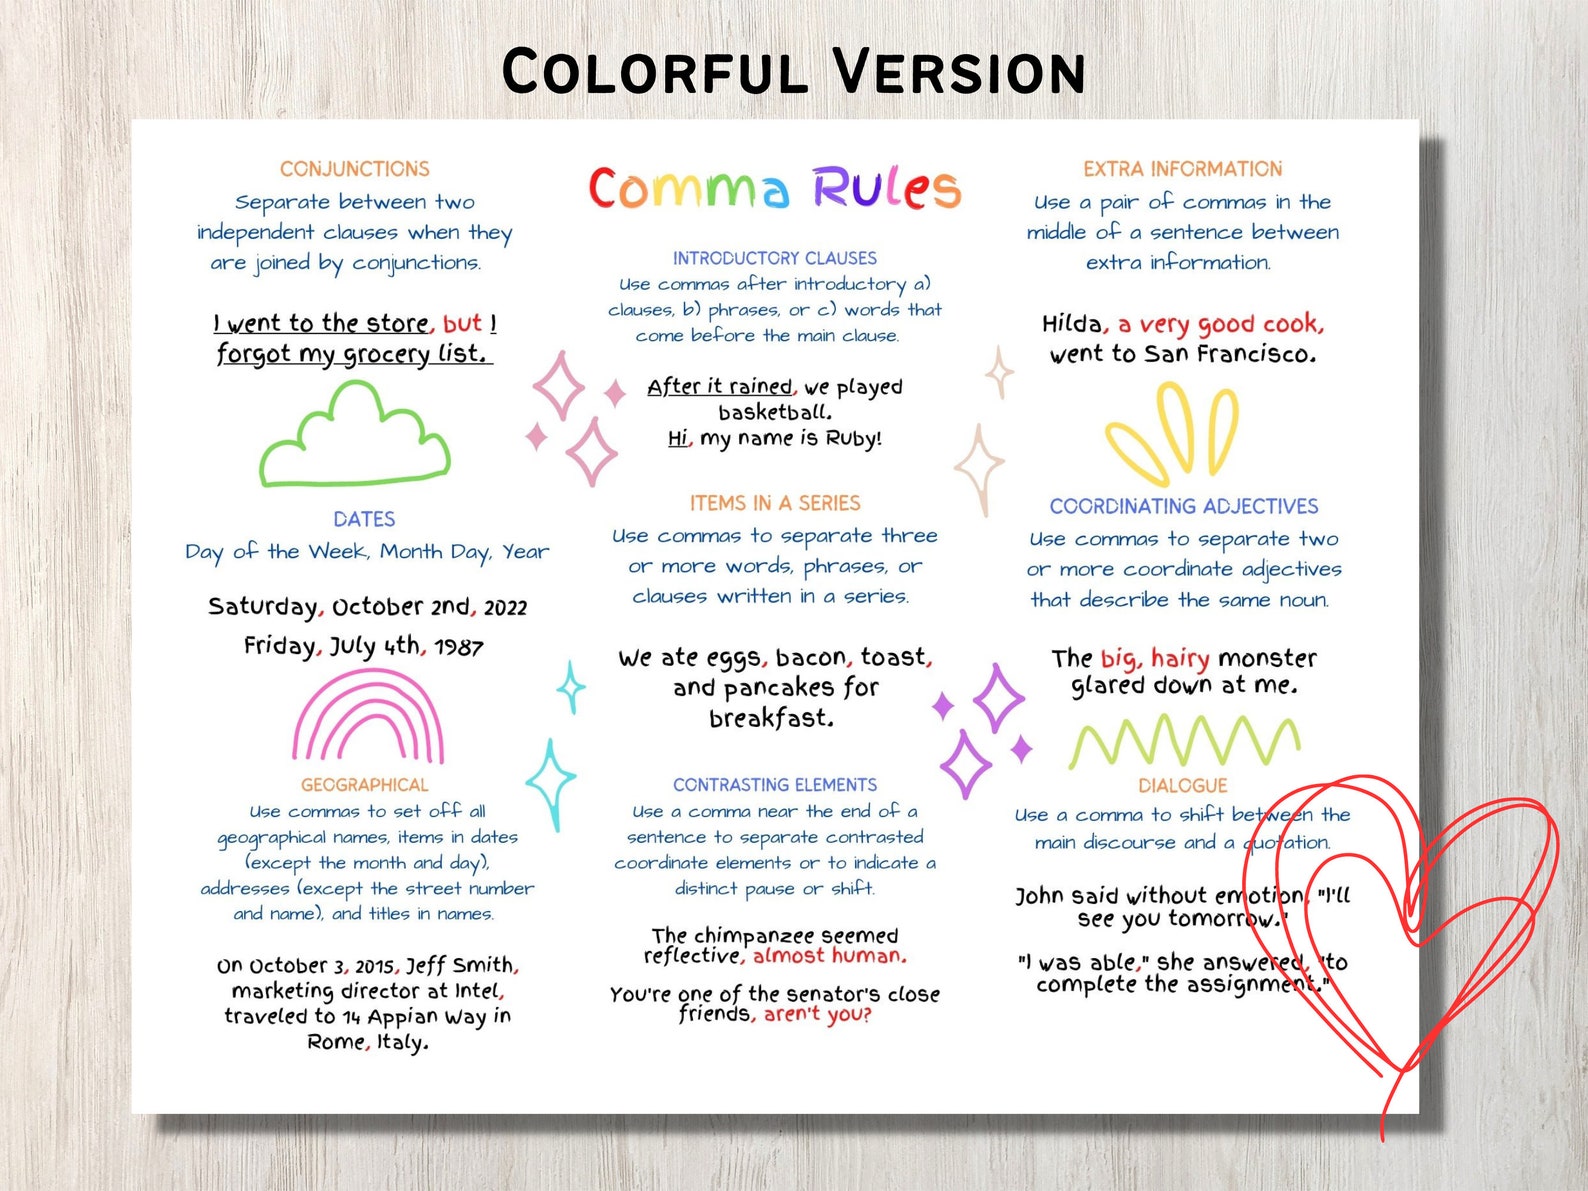 COLORFUL VERSION
Comma Rules
CONJUNCTIONS
Separate between two
independent clauses when they
are joined by conjunctions.
I went to the store, but I
forgot my grocery list.
DATES
Day of the Week, Month Day, Year
Saturday, October 2nd, 2022
Friday, July 4th, 1987
GEOGRAPHICAL
Use commas to set off all
geographical names, items in dates
(except the month and day),
addresses (except the street number
and name), and titles in names.
On October 3, 2015, Jeff Smith,
marketing director at Intel,
traveled to 14 Appian Way in
Rome, Italy.
INTRODUCTORY CLAUSES
Use commas after introductory a)
clauses, b) phrases, or c) words that
come before the main clause.
After it rained, we played
basketball.
Hi, my name is Ruby!
ITEMS IN A SERIES
Use commas to separate three
or more words, phrases, or
clauses written in a series.
We ate eggs, bacon, toast,
and pancakes for
breakfast.
CONTRASTING ELEMENTS
Use a comma near the end of a
sentence to separate contrasted
coordinate elements or to indicate a
distinct pause or shift.
The chimpanzee seemed
reflective, almost human.
You're one of the senator's close
friends, aren't you?
EXTRA INFORMATION
Use a pair of commas in the
middle of a sentence between
extra information.
Hilda, a very good cook,
went to San Francisco.
COORDINATING ADJECTIVES
Use commas to separate two
or more coordinate adjectives
that describe the same noun.
The big, hairy monster
glared down at me.
DIALOGUE
Use a comma to shift between the
main discourse and a quotation.
John said without emotion, "I'll
see you tomorrow."
"I was able," she answered, "to
complete the assignment."